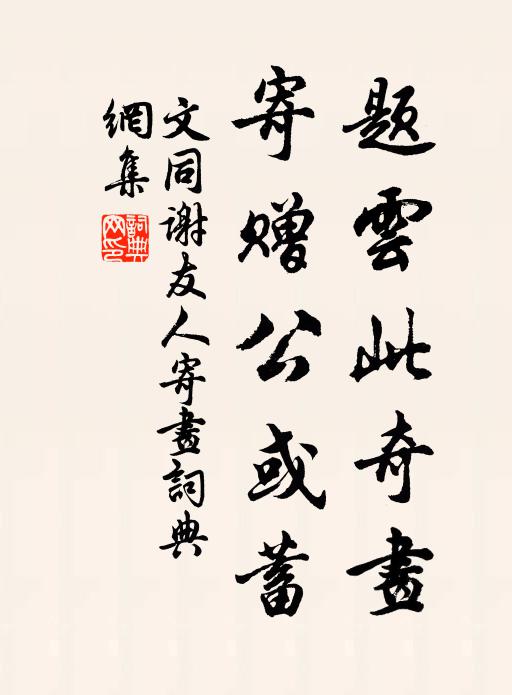 題雲此奇畫
寄贈公或蓄
文同謝友人寄畫詞典
網集
詞典網印